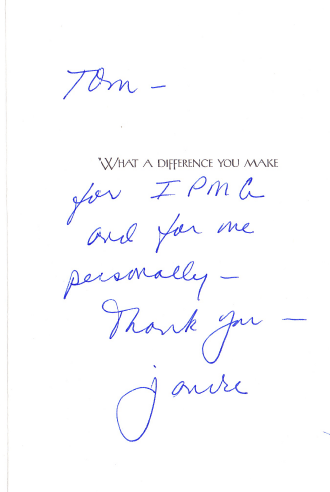 Tom –
WHAT A DIFFERENCE YOU MAKE
for IPMA
and for me
personally –
Thank you –